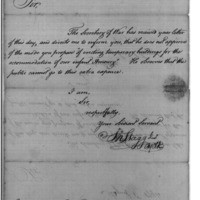 Sir,
The Secretary of War has received your letter
of this day, and directs me to inform you, that he does not approve
of the mode you propose of erecting temporary buildings for the
accommodation of our

He deems that the
public cannot go to this extra expence.
I am,
Sir,
respectfully
Your obedient Servant